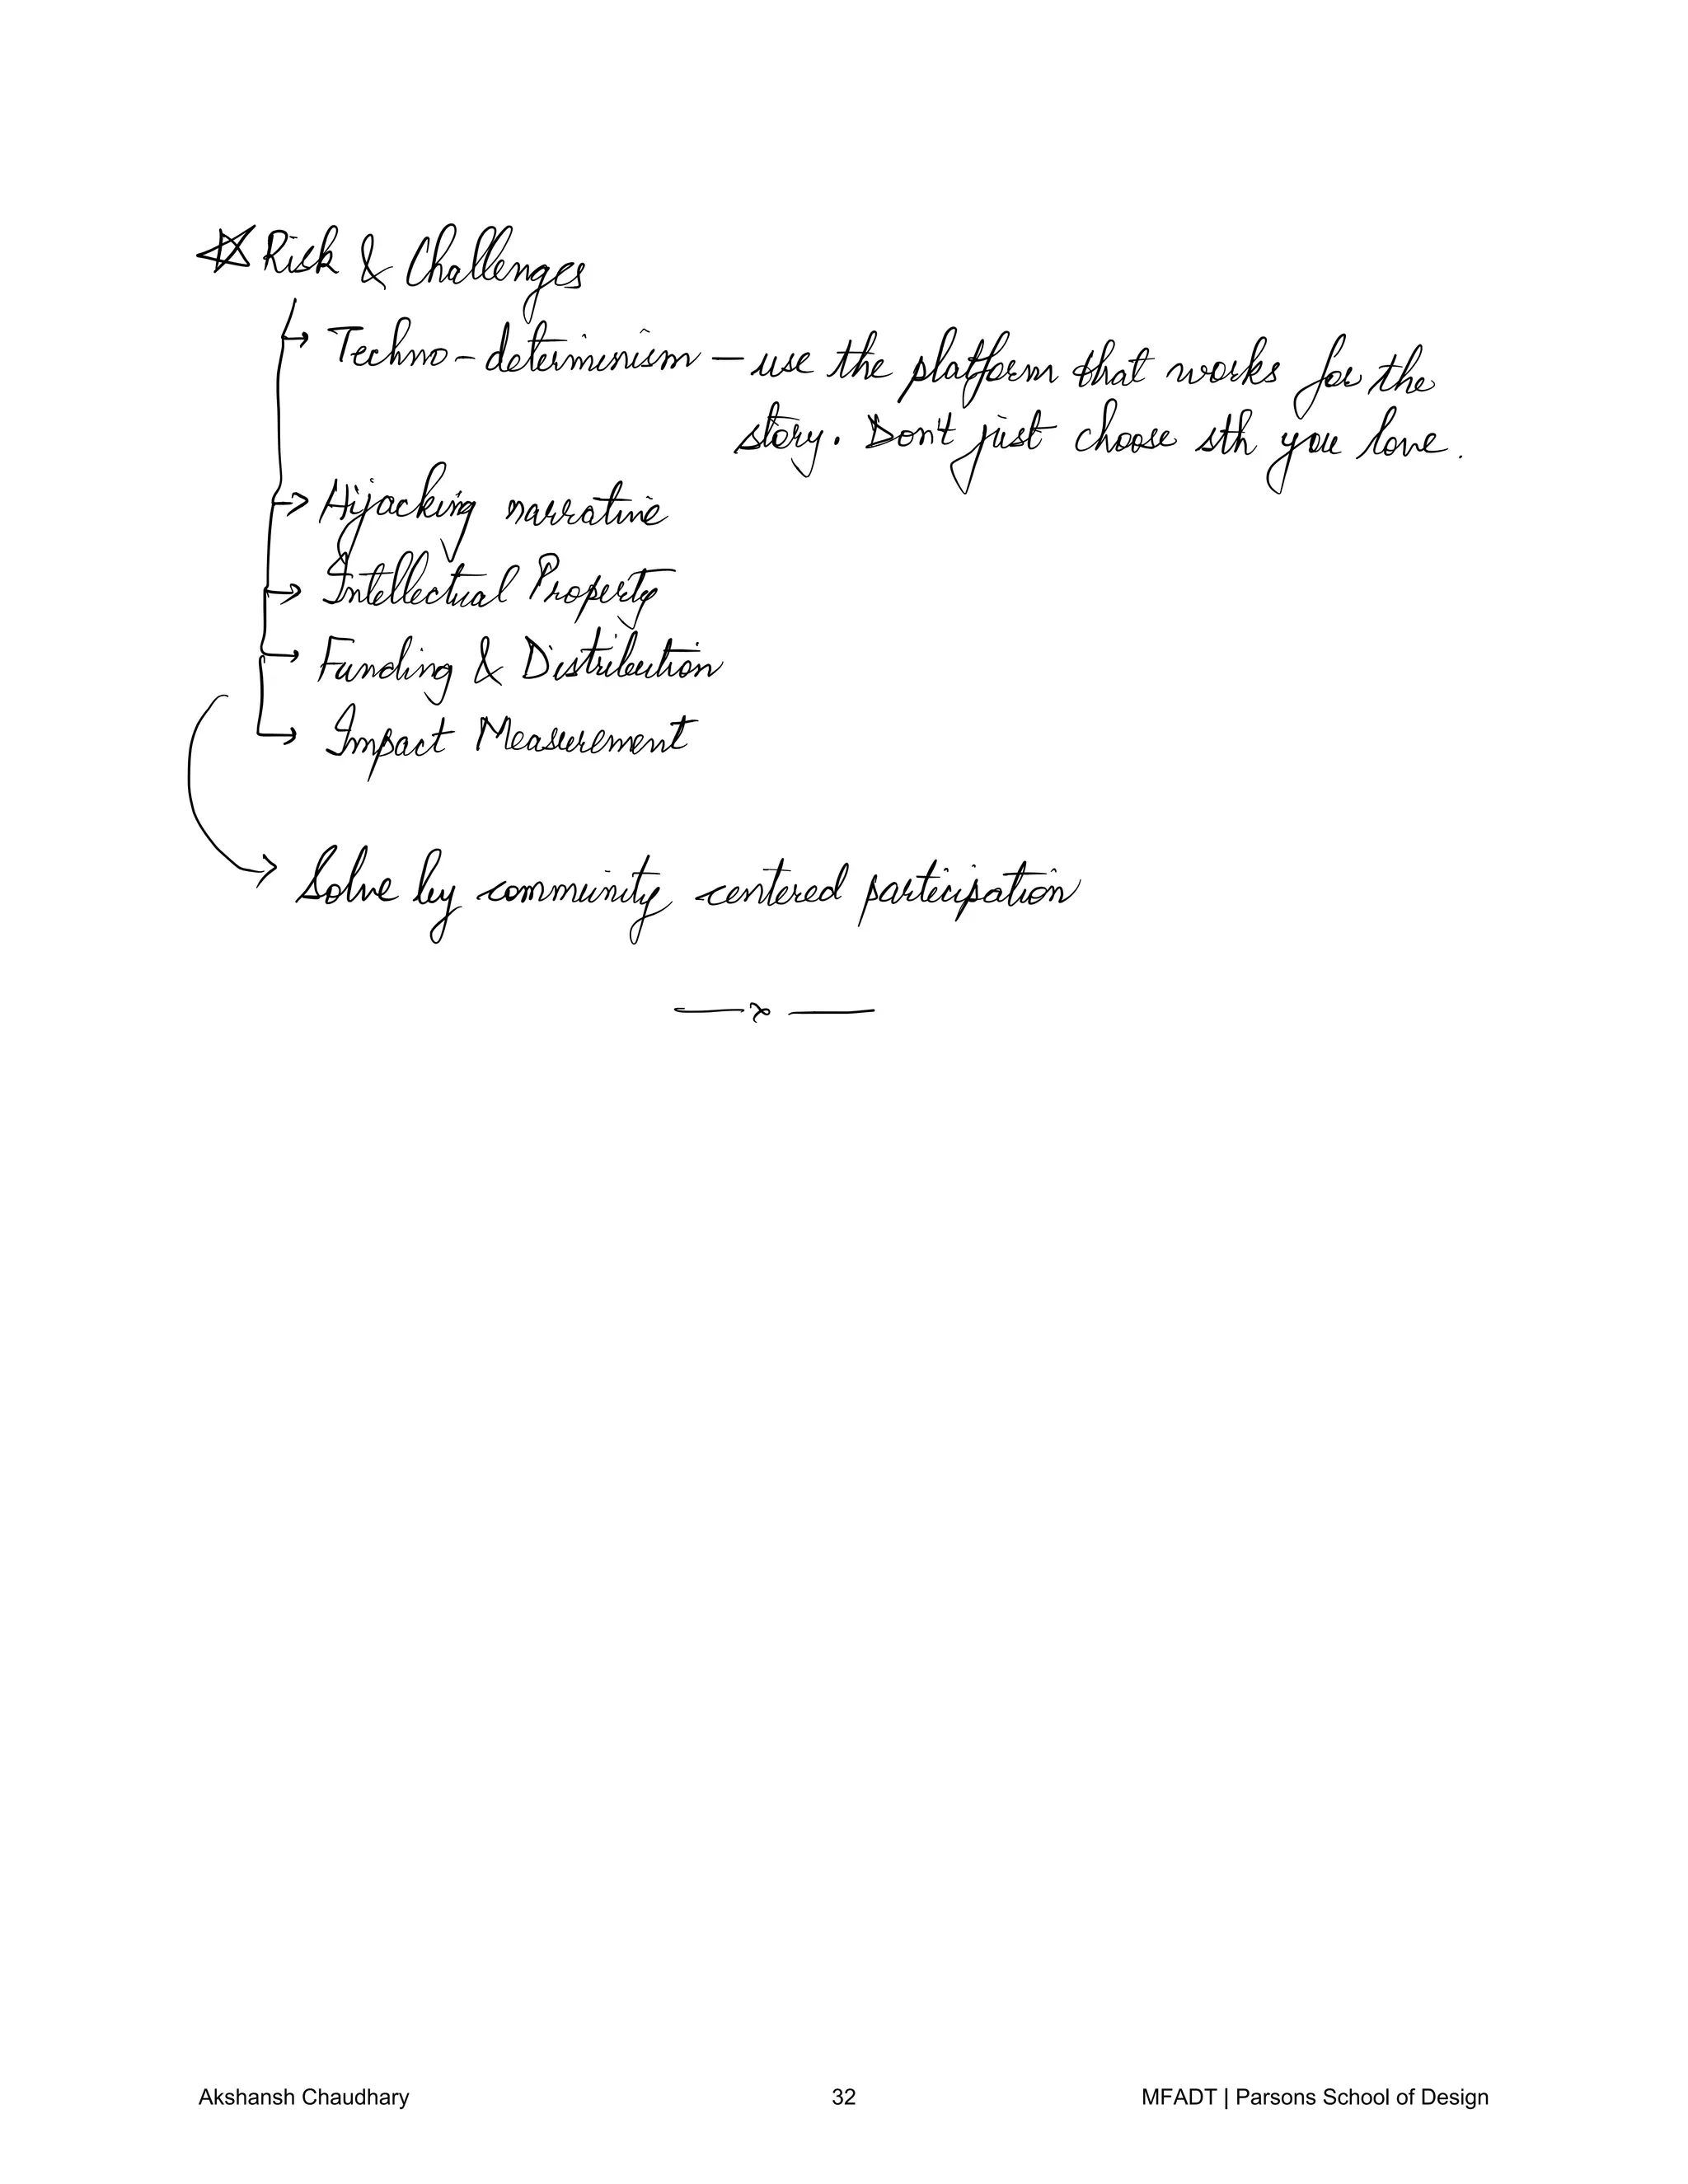 Risk & Challenges
Techno-determinism - use the platform that works for the
story. Don't just choose sth you love.
Hijacking narrative
Intellectual Property
Funding & Distribution
Impact Measurement
Solve by community centered participation
Akshansh Chaudhary 32 MFADT | Parsons School of Design